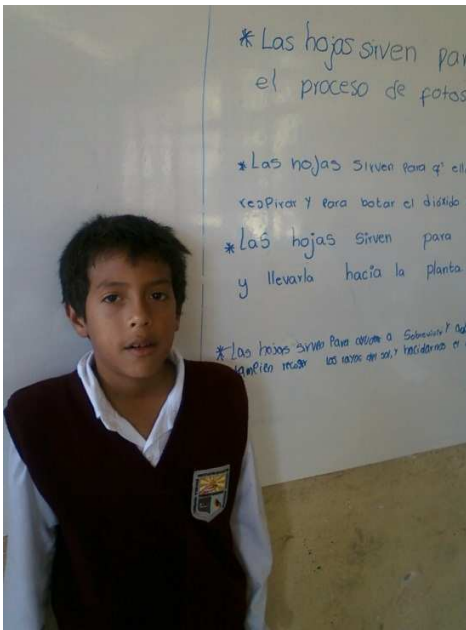 * Las hojas sirven par
el proceso de fotos
* Las hojas sirven para q' ell
respirar y para botar el dióxido
* Las hojas sirven para
y llevarla hacia la planta.
* Las hojas sirven Para a Sobrevivir y
tampien recoger los rayos del sol, y el